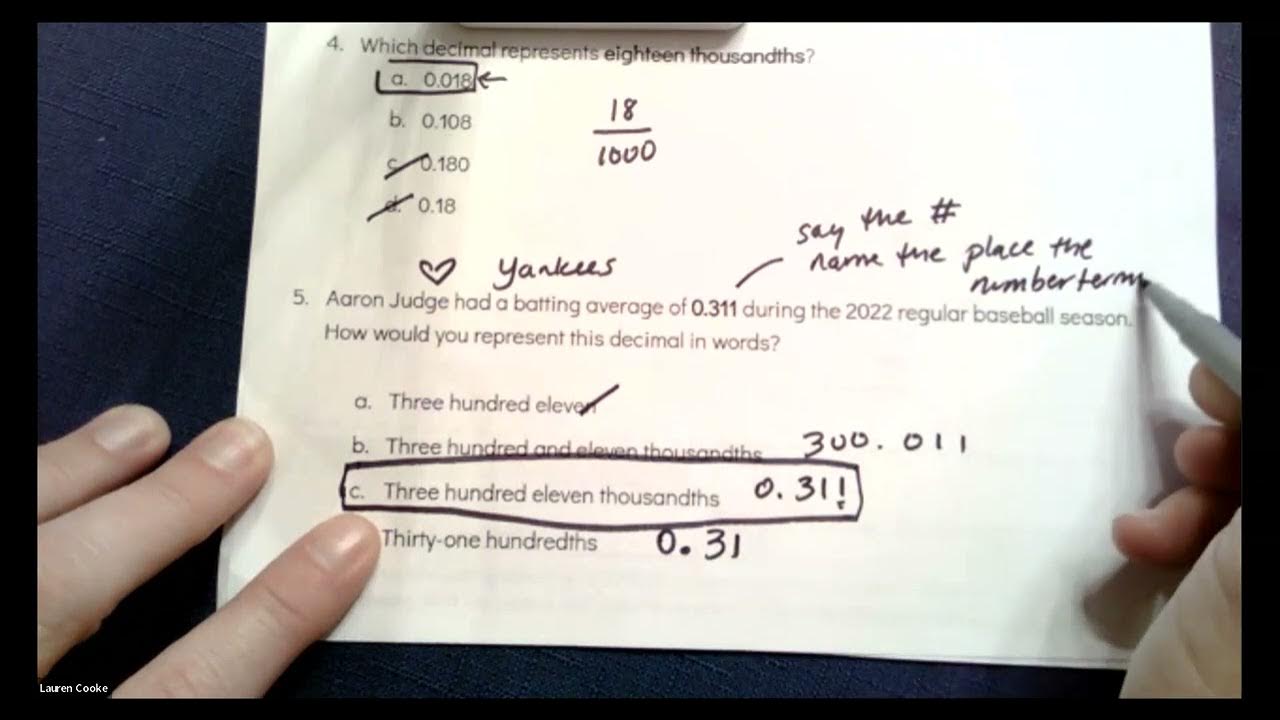 4. Which decimal represents eighteen thousandths?
a. 0.018
b. 0.108
c. 0.180
d. 0.18
18
1000
say the #
name the place the
number term
♡ Yankees
5. Aaron Judge had a batting average of 0.311 during the 2022 regular baseball season.
How would you represent this decimal in words?
a. Three hundred eleven
b. Three hundred and eleven thousandths 300.011
c. Three hundred eleven thousandths 0.311
Thirty-one hundredths 0.31
Lauren Cooke